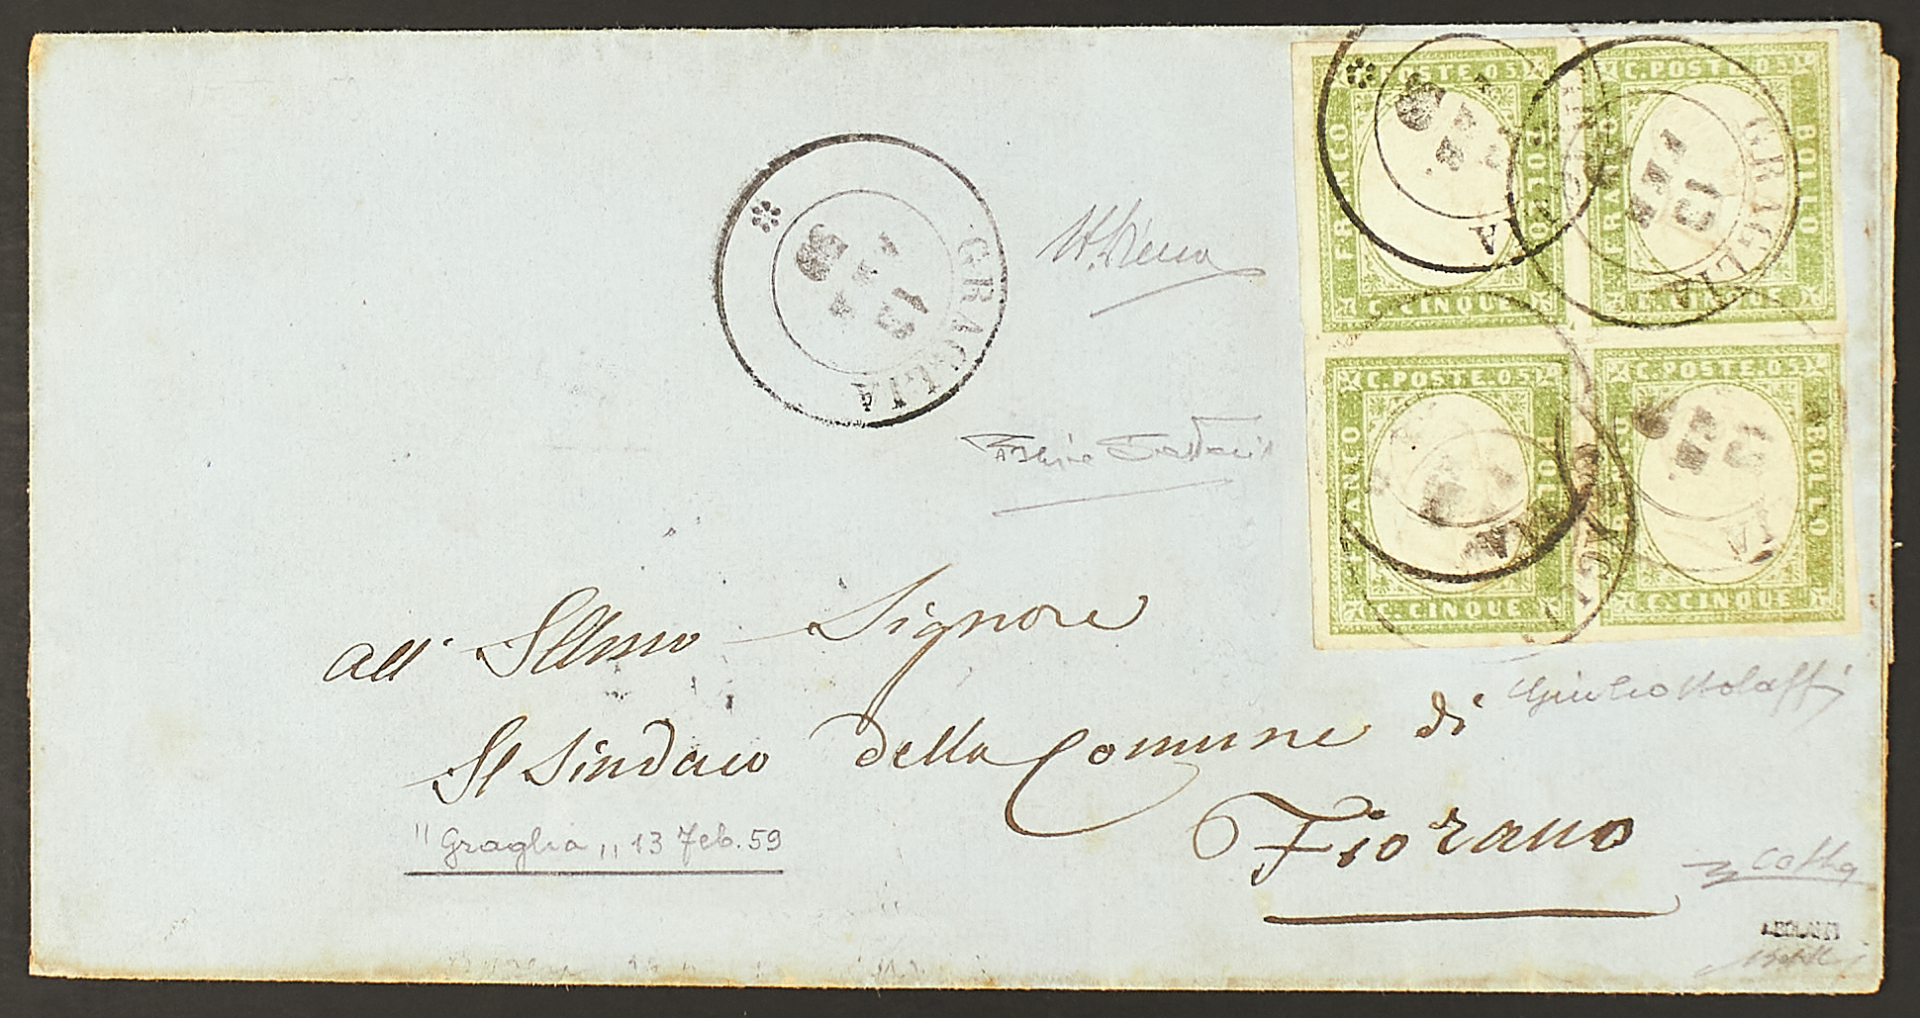 C. POSTE. 05
FRANCO
BOLLO
C. CINQUE
C. POSTE. 05
FRANCO
BOLLO
C. CINQUE
C. POSTE. 05
FRANCO
BOLLO
C. CINQUE
C. POSTE. 05
BOLLO
C. CINQUE
GRAGLIA
GRAGLIA
13
FEB
GRAGLIA
13
59
all' Illmo Signore
Giulio Bolaffi
Il Sindaco della Comune di
Fiorano
"Graglia„ 13 Feb. 59
A. BOLAFFI